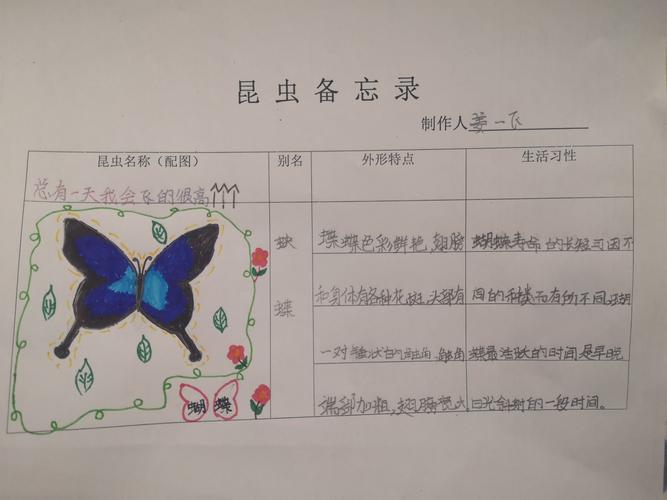 昆虫备忘录
制作人 姜一飞
昆虫名称（配图） 别名 外形特点 生活习性
总有一天我会飞的很高
蛱
蝶
蝴蝶
蝶蝶色彩鲜艳，翅膀
和身体有各种花斑，头部有
一对锤状的触角，触角
端部加粗，翅膀宽大
蝴蝶寿命的长短与因不
同的种类而有所不同。蝴
蝶最活跃的时间是早晚
日光斜射的一段时间。